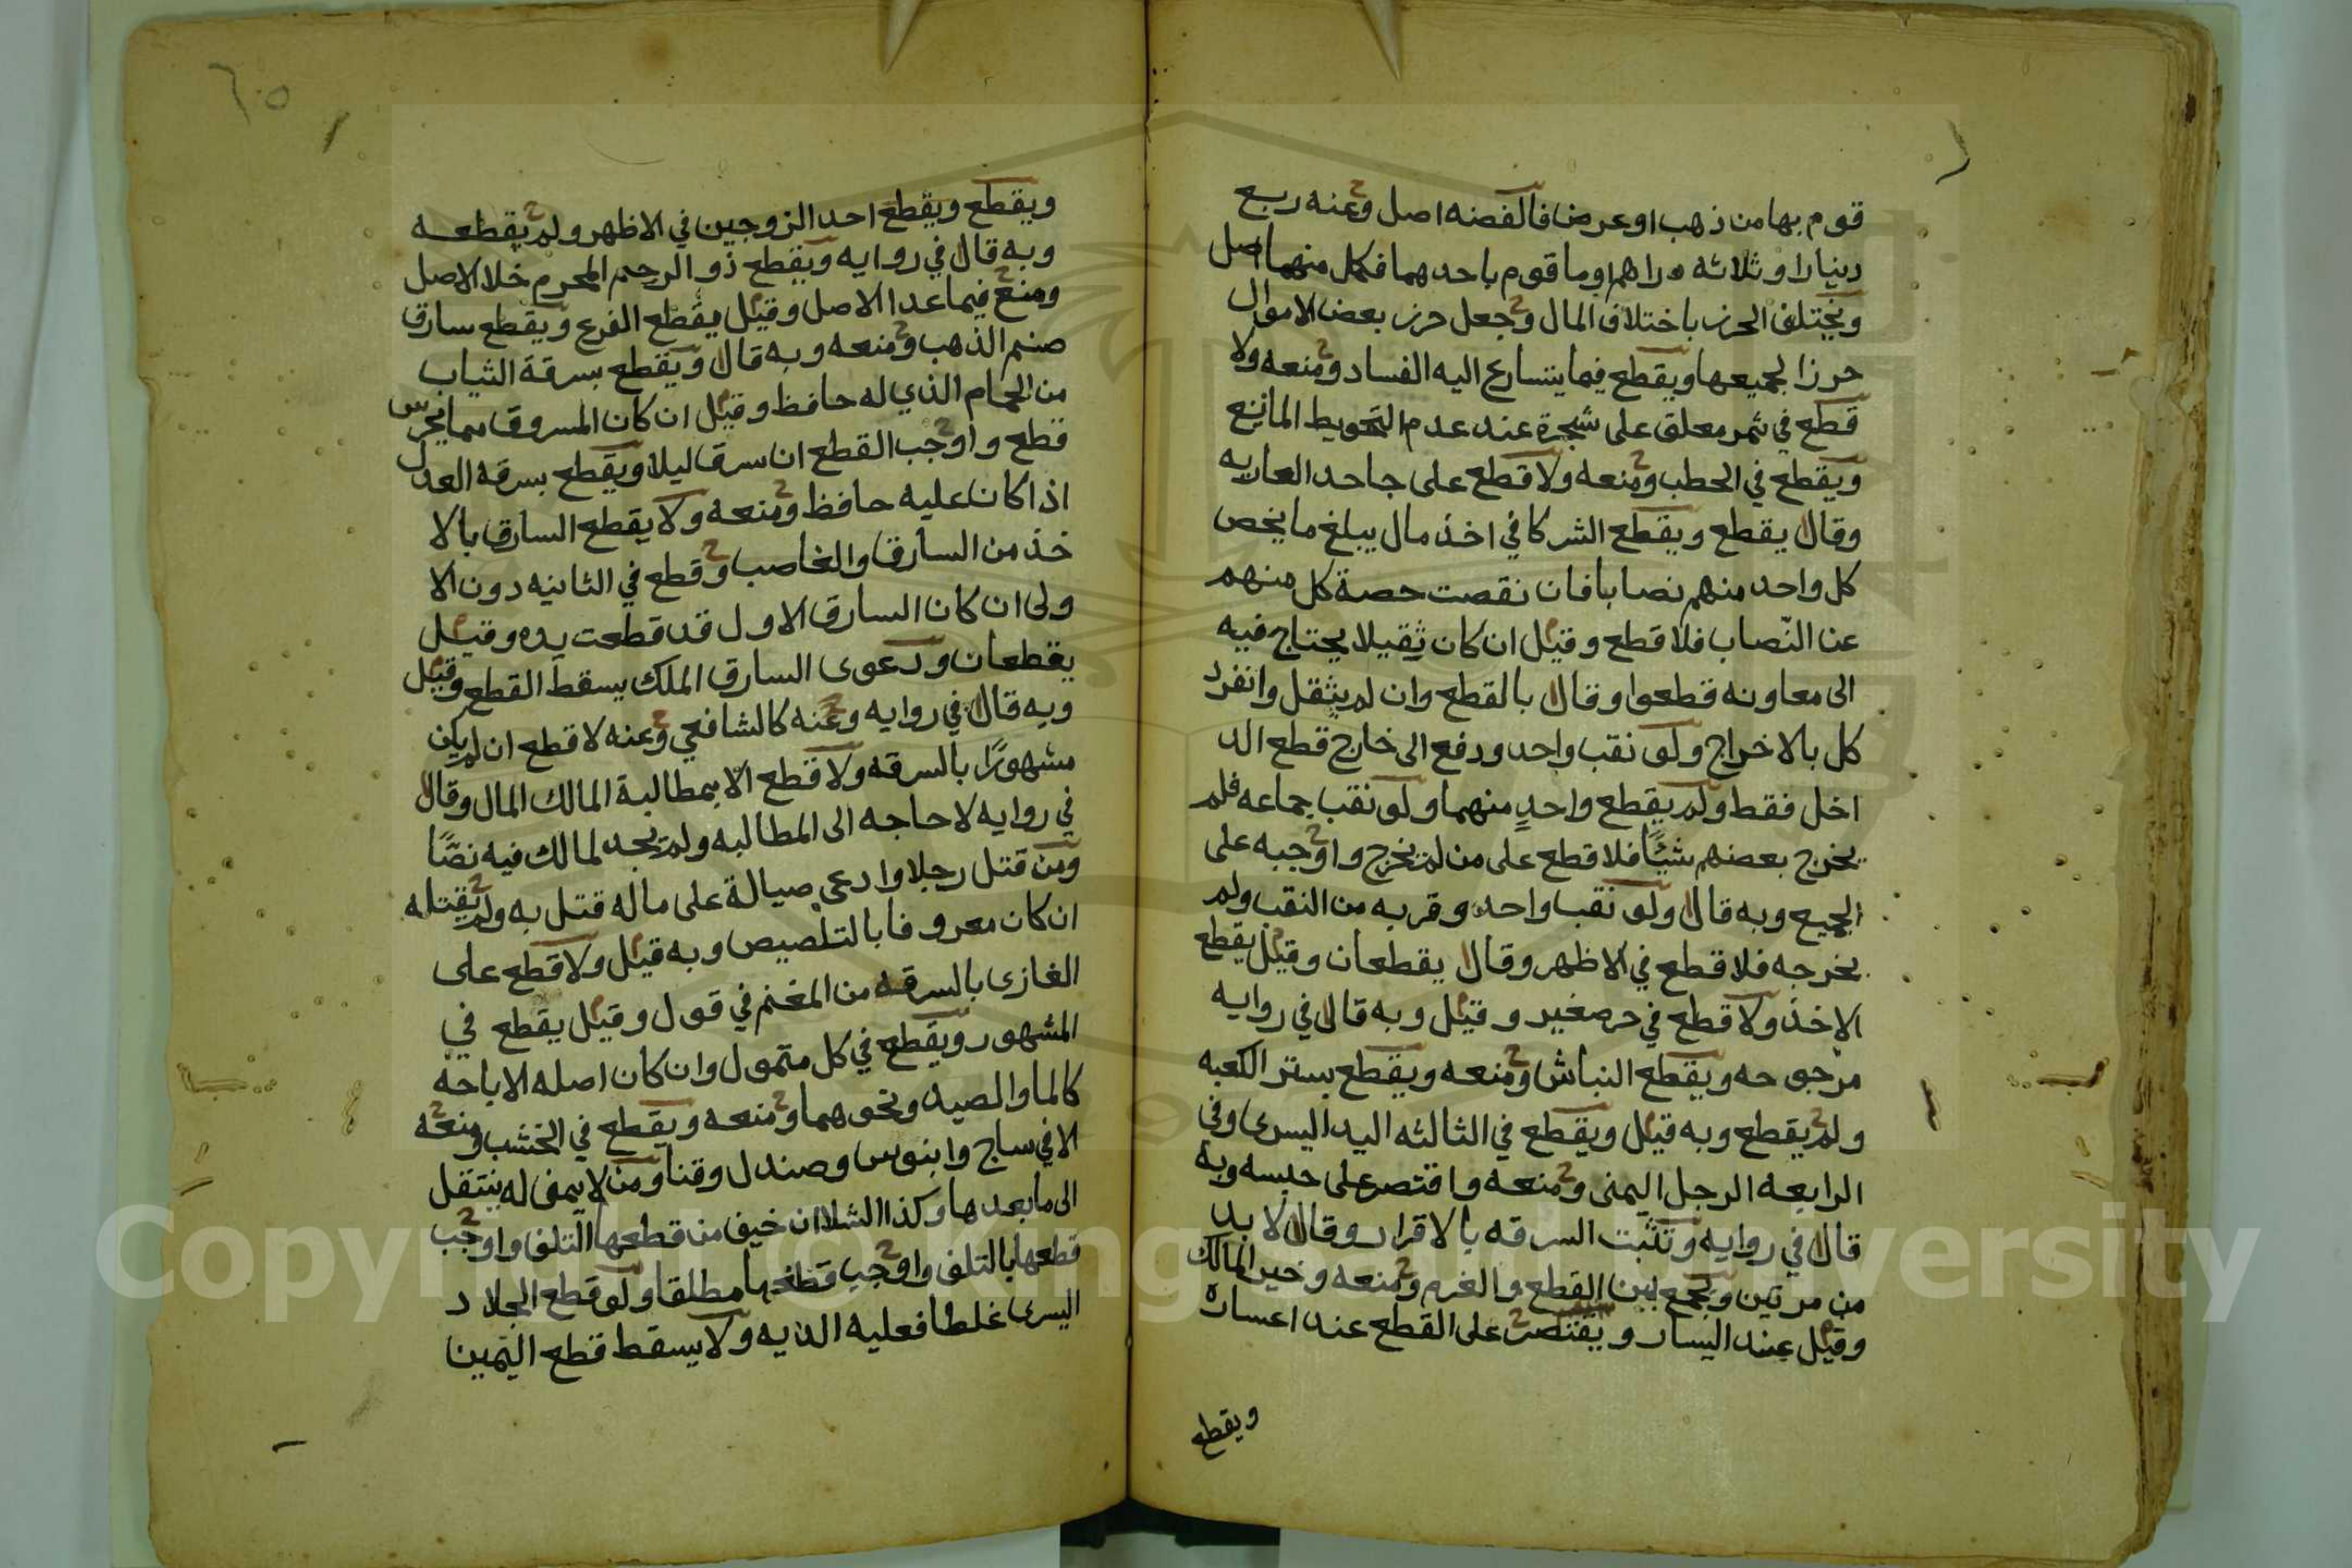 قوم بها من ذهب او عرض فالفضه اصل وعنه ربع
دينارا وثلاثه دراهم وما قوم باحدهما فكل منهما اصل
ويختلف الحرز باختلاف المال وجعل حرز بعض الاموال
حرزا لجميعها ويقطع فيما يتسارع اليه الفساد ومنعه ولا
قطع في ثمر معلق على شجرة عند عدم التحويط المانع
ويقطع في الحطب ومنعه ولا قطع على جاحد العاريه
وقال يقطع ويقطع الشركا في اخذ مال يبلغ ما يخص
كل واحد منهم نصابا فان نقصت حصة كل منهم
عن النّصاب فلا قطع وقيل ان كان ثقيلا يحتاج فيه
الى معاونه قطعوا وقال بالقطع وان لم يثقل وانفرد
كل بالاخراج ولو نقب واحد ودفع الى خارج قطع الد
اخل فقط ولم يقطع واحدٍ منهما ولو نقب جماعه فلم
يخرج بعضهم شيًا فلا قطع على من لم يخرج واوجبه على
الجميع وبه قال ولو نقب واحد وقربه من النقب ولم
يخرجه فلا قطع في الاظهر وقال يقطعان وقيل يقطع
الاخذ ولا قطع في حر صغير وقيل وبه قال في روايه
مرجوحه ويقطع النباش ومنعه ويقطع بستر الكعبه
ولم يقطع وبه قيل ويقطع في الثالثه اليد اليسرى وفى
الرابعه الرجل اليمنى ومنعه واقتصر على حبسه وبه
قال في روايه وتثبت السرقه بالاقرار وقال لا بد
من مرتين ويجمع بين القطع والغرم ومنعه وخير المالك
وقيل عند اليسار ويقتصر على القطع عند اعساره
ويقطع
٦٠٥
ويقطع ويقطع احد الزوجين في الاظهر ولم يقطعه
وبه قال في روايه ويقطع ذو الرحم المحرم خلا الاصل
ومنع فيما عدا الاصل وقيل يقطع الفرع ويقطع سارق
صنم الذهب ومنعه وبه قال ويقطع بسرقة الثياب
من الحمام الذي له حافظ وقيل ان كان المسروق مما يحرس
قطع واوجب القطع ان سرق ليلا ويقطع بسرقه العدل
اذا كان عليه حافظ ومنعه ولا يقطع السارق بالا
خذ من السارق والغاصب وقطع في الثانيه دون الا
ولى ان كان السارق الاول قد قطعت يده وقيل
يقطعان ودعوى السارق الملك يسقط القطع وقيل
وبه قال في روايه وعنه كالشافعي وعنه لا قطع ان لم يكن
مشهورًا بالسرقه ولا قطع الا بمطالبة المالك المال وقال
في روايه لا حاجه الى المطالبه ولم يجد لمالك فيه نصًا
ومن قتل رجلا وادعى صيالة على ماله قتل به ولم يقتله
ان كان معروفا بالتلصيص وبه قيل ولا قطع على
الغازى بالسرقه من المغنم في قول وقيل يقطع في
المشهور ويقطع في كل متمول وان كان اصله الاباحه
كالما والصيد ونحوهما ومنعه ويقطع في الخشب ومنعه
الا في ساج وابنوس وصندل وقنا ومن لا يمنى له ينتقل
الى ما بعدها وكذا الشلا ان خيف من قطعها التلف واوجب
قطعها بالتلف واوجب قطعها مطلقا ولو قطع الجلاد
اليسرى غلطا فعليه الديه ولا يسقط قطع اليمين
Copyright © King Saud University